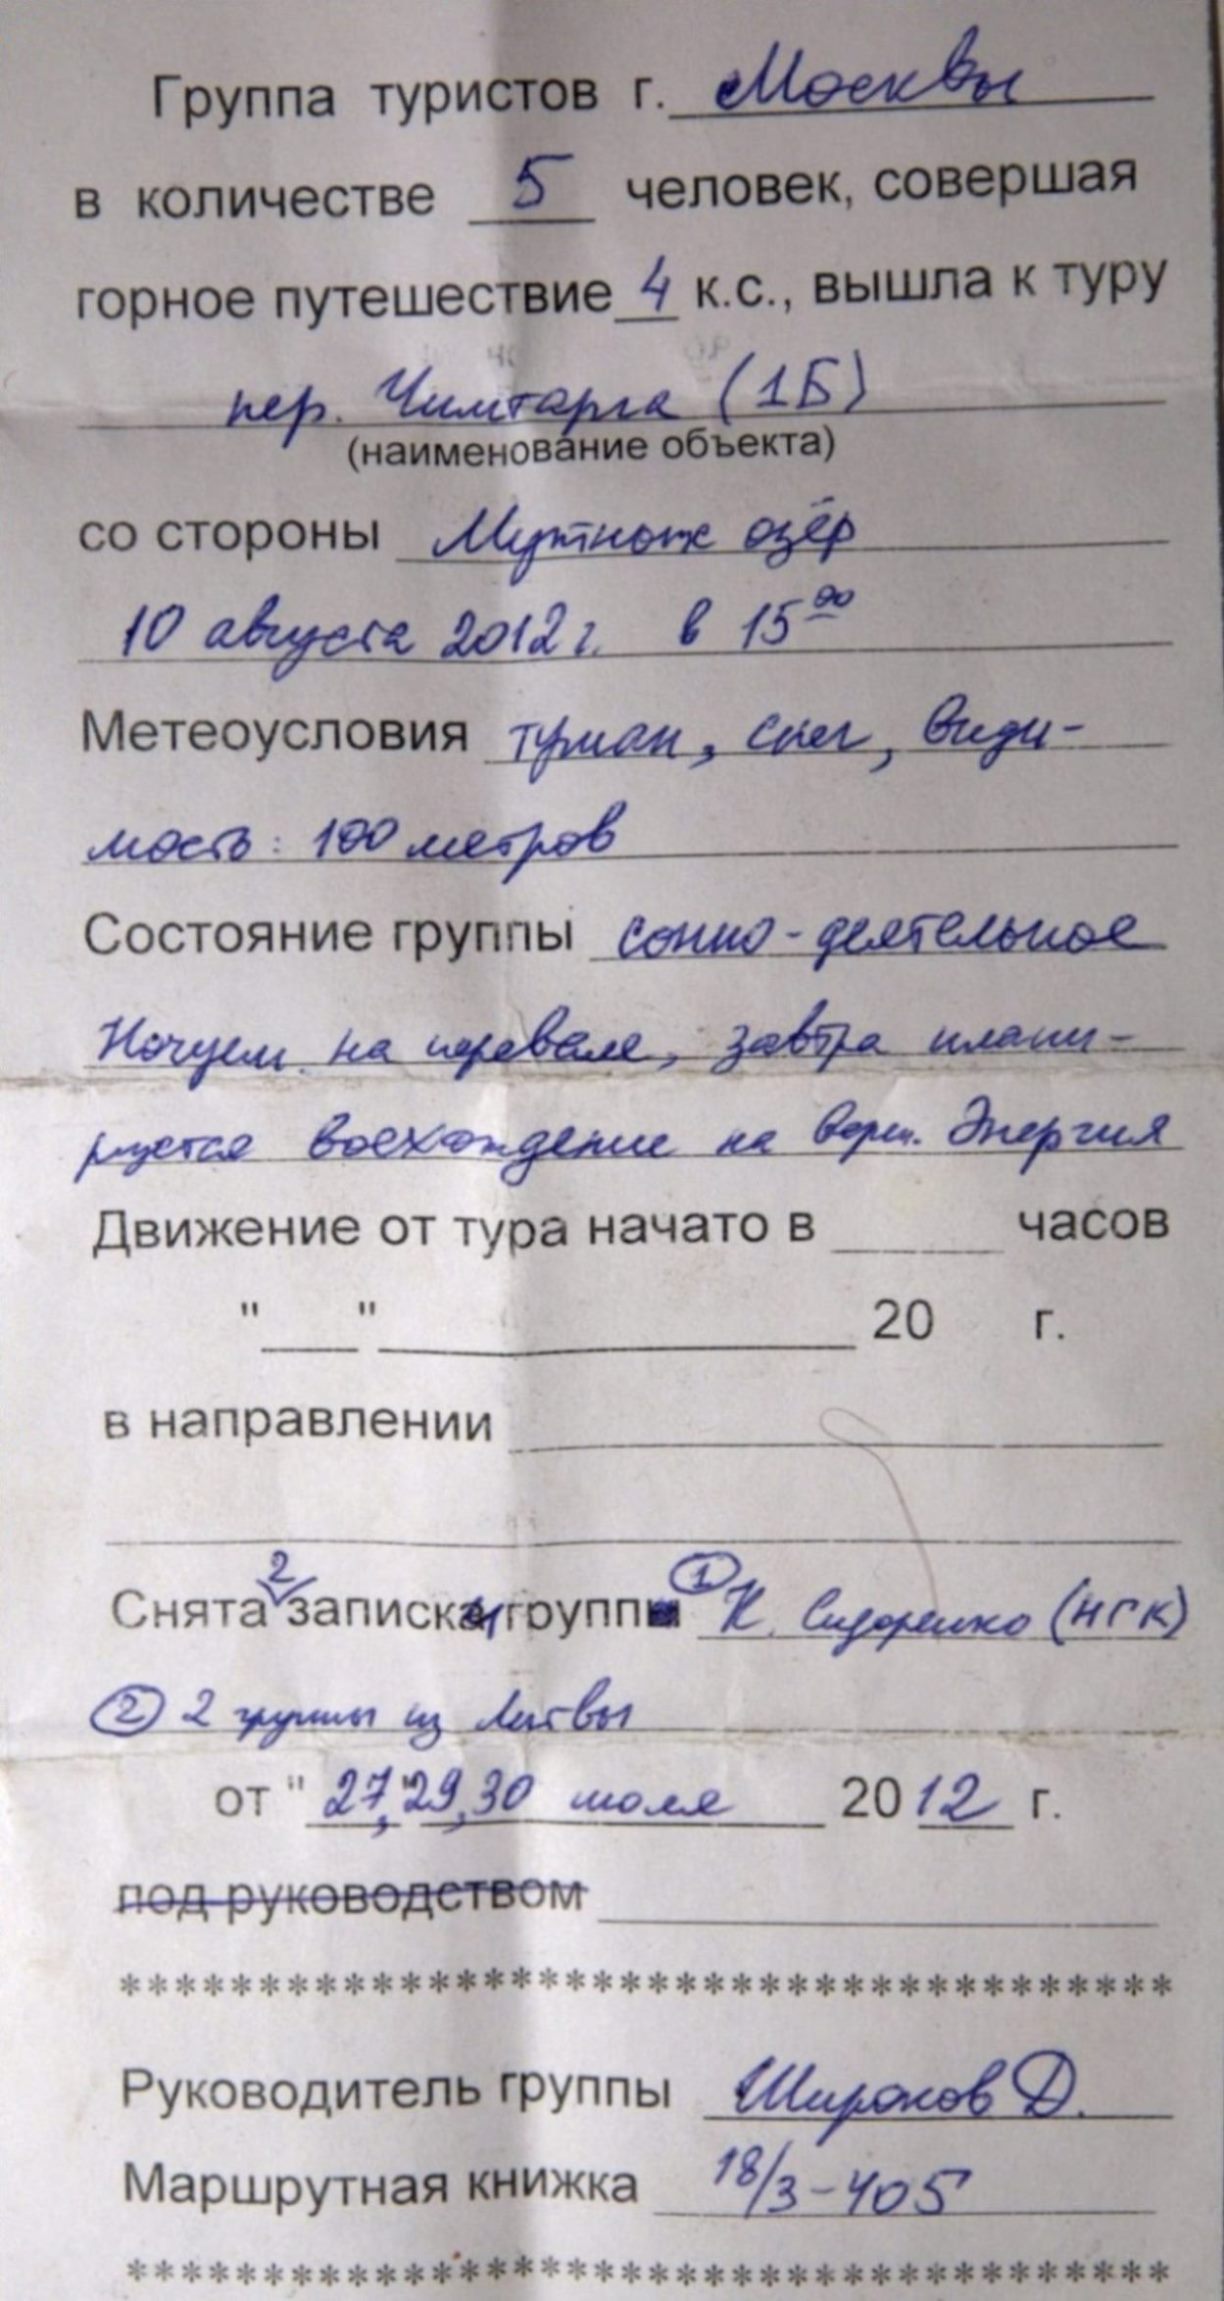 Группа туристов г. Москвы
в количестве 5 человек, совершая
горное путешествие 4 к.с., вышла к туру
пер. Чимтарга (1Б)
(наименование объекта)
со стороны Мутных озёр
10 августа 2012 г. в 15 00
Метеоусловия туман, снег, види-
мость: 100 метров
Состояние группы сонно-деятельное
Ночуем на перевале, завтра плани-
руется восхождение на верш. Энергия
Движение от тура начато в ____ часов
"___"__________ 20 г.
в направлении
Снята 2 записки групп ① К. Сидоренко (НГК)
② 2 группы из Литвы
от "27,"29,30 июля 2012 г.
под руководством
**************************************
Руководитель группы Широков Д.
Маршрутная книжка 18/3-405
**************************************